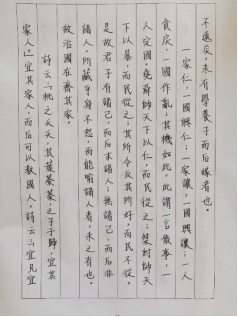 不遠矣。未有學養子而后嫁者也。
一家仁，一國興仁；一家讓，一國興讓；一人
貪戾，一國作亂；其機如此。此謂一言僨事，一
人定國。堯舜帥天下以仁，而民從之；桀紂帥天
下以暴，而民從之；其所令反其所好，而民不從。
是故君子有諸己，而后求諸人；無諸己，而后非
諸人。所藏乎身不恕，而能喻諸人者，未之有也。
故治國在齊其家。
詩云：「桃之夭夭，其葉蓁蓁；之子于歸，宜其
家人。」宜其家人，而后可以教國人。詩云：「宜兄宜